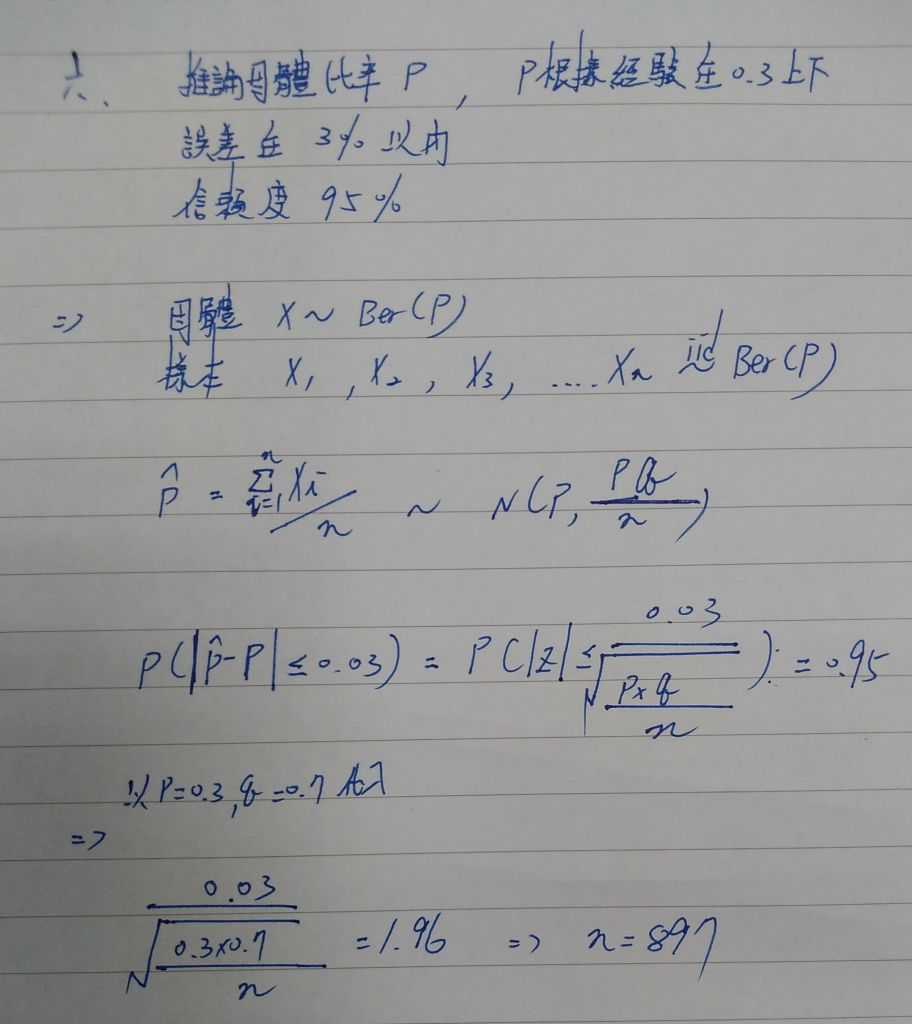 六、 推論母體比率 P , P根據經驗在 0.3上下
誤差在 3% 以內
信賴度 95%
=> 母體 X ~ Ber(P)
樣本 X₁ , X₂ , X₃ , .... Xₙ iid~ Ber(P)
p̂ = Σᵢ₌₁ⁿ Xᵢ / n ~ N(P, Pq/n)
P(|p̂-P| ≤ 0.03) = P(|Z| ≤ 0.03/√(P×q/n)) = 0.95
以 P=0.3, q=0.7 代入
=>
0.03/√(0.3×0.7/n) = 1.96 => n = 897